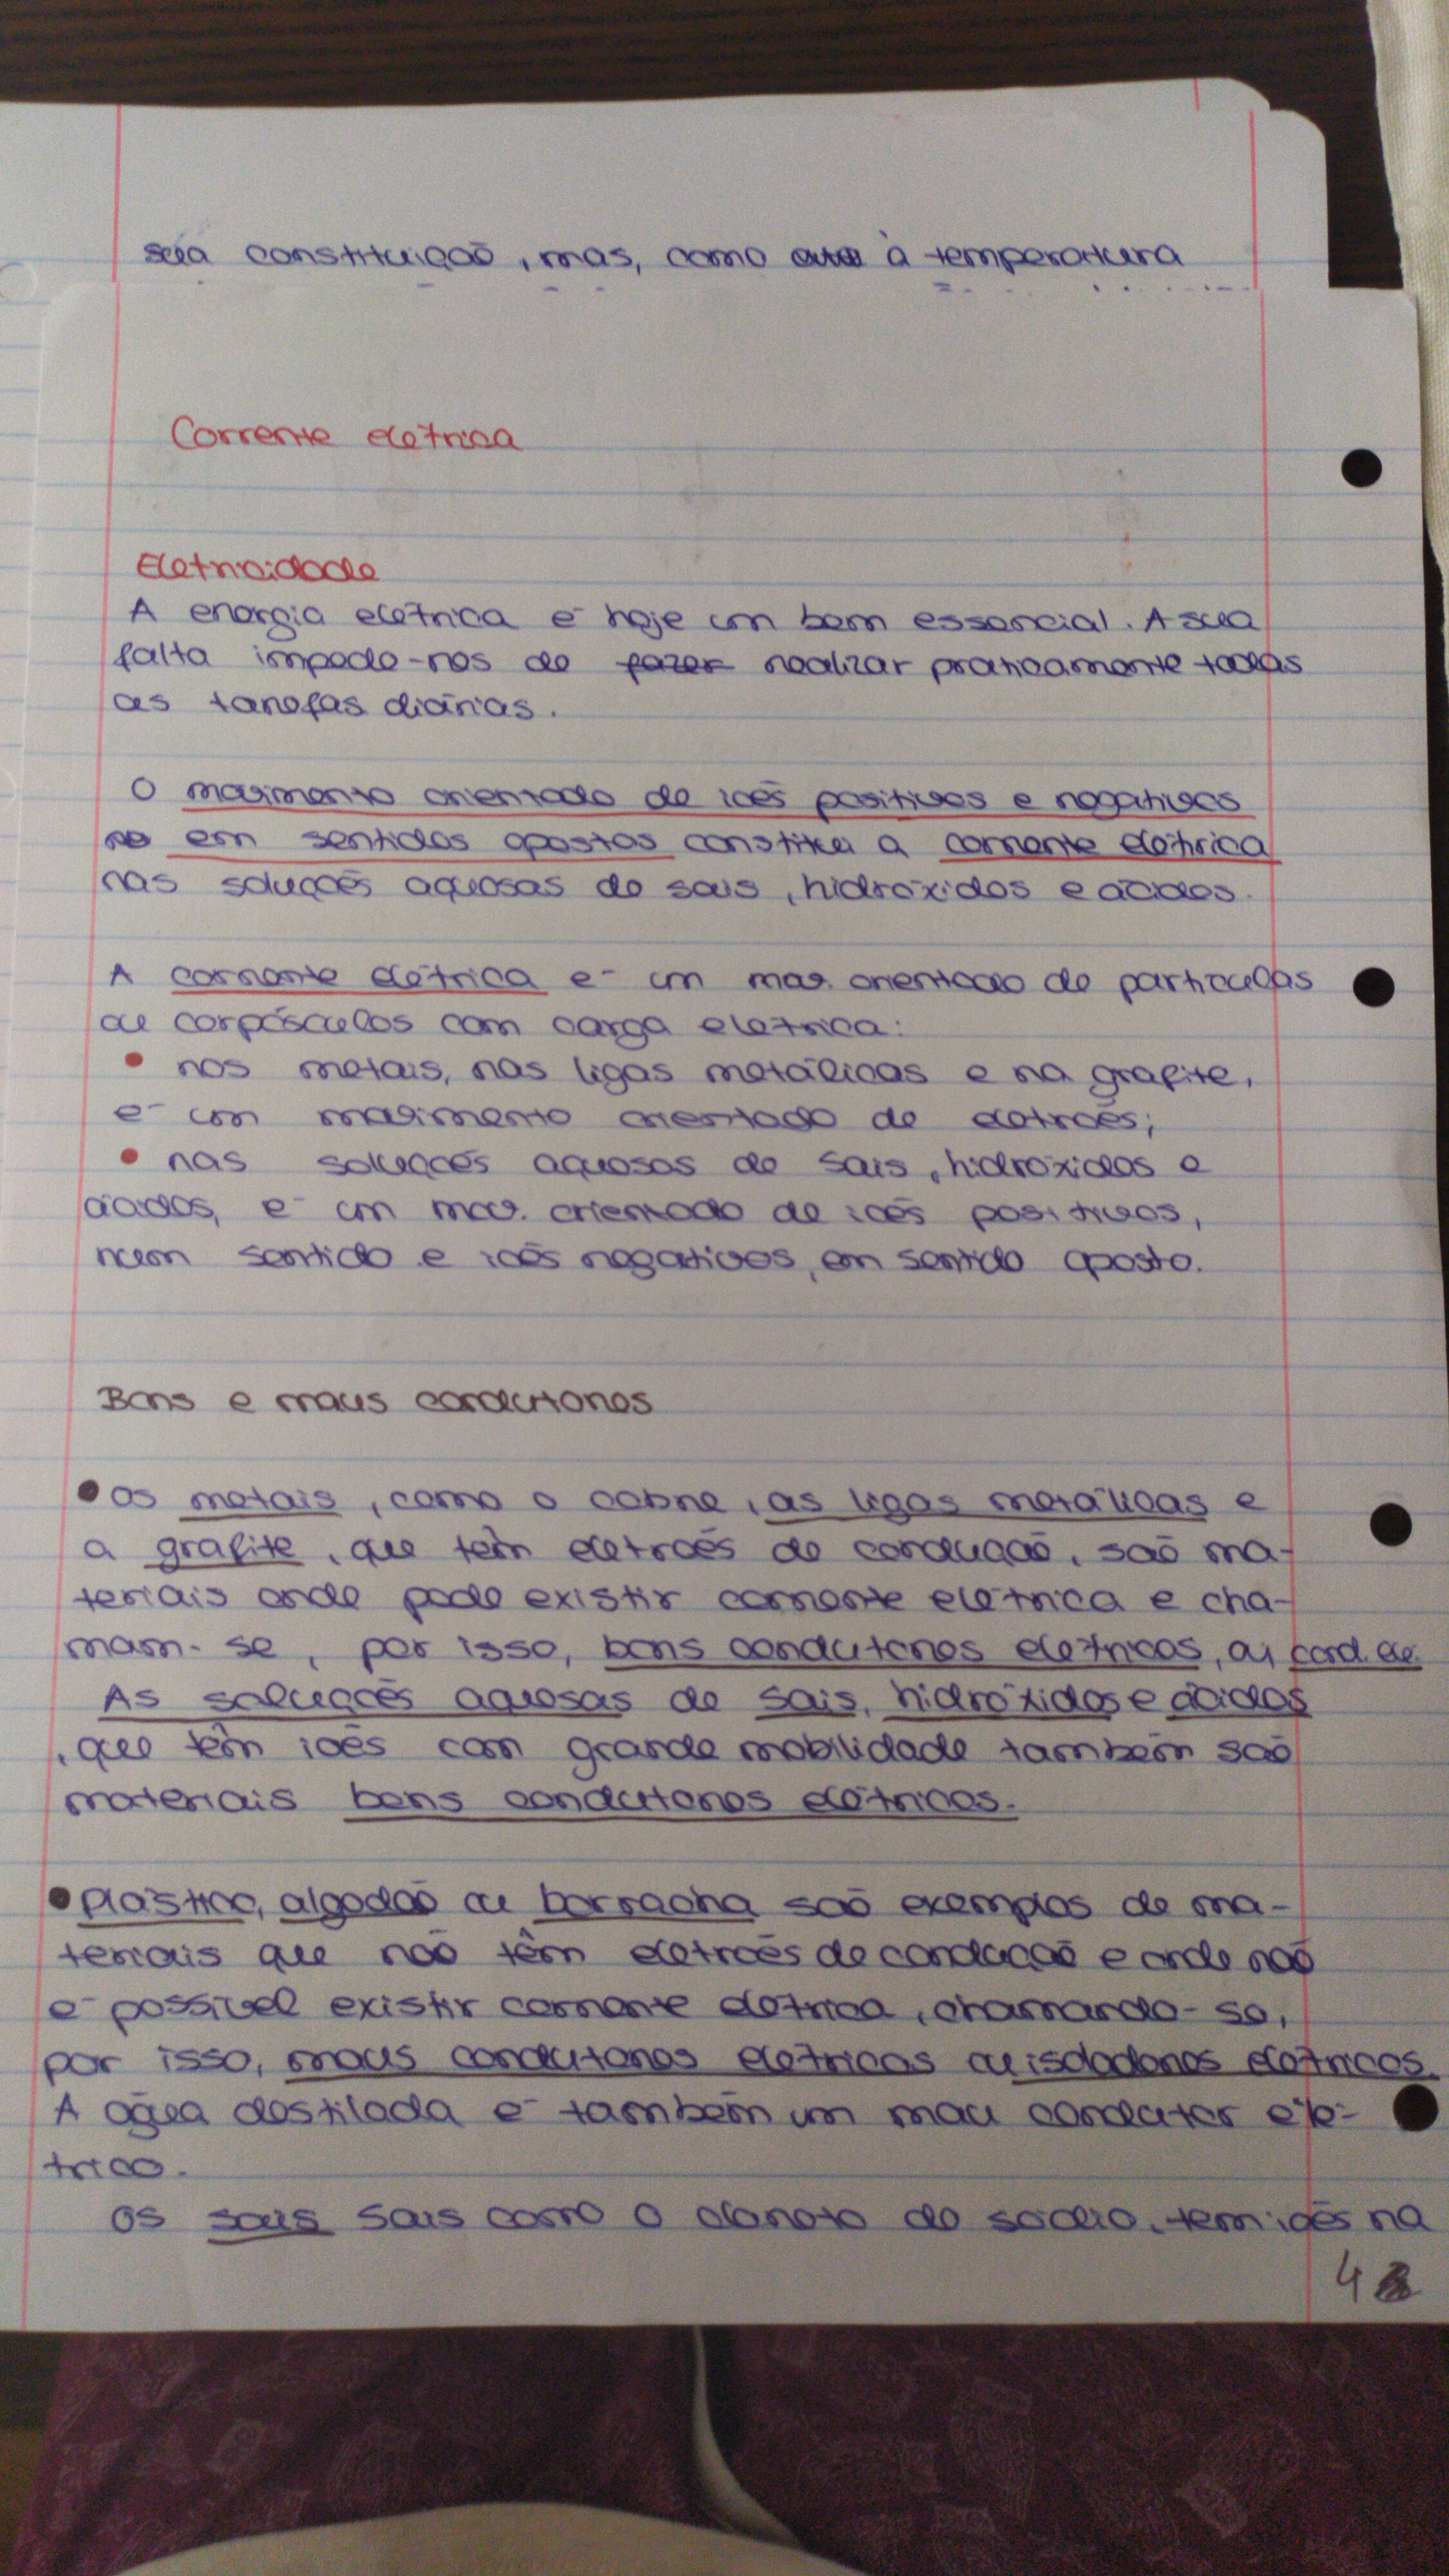 sua constituição, mas, como à temperatura
Corrente elétrica
Eletricidade
A energia elétrica é hoje um bem essencial. A sua
falta impede-nos de fazer realizar praticamente todas
as tarefas diárias.
O movimento orientado de iões positivos e negativos
em sentidos opostos constitui a corrente elétrica
nas soluções aquosas de sais, hidróxidos e ácidos.
A corrente elétrica é um mov. orientado de partículas
ou corpúsculos com carga elétrica:
• nos metais, nas ligas metálicas e na grafite,
é um movimento orientado de eletrões;
• nas soluções aquosas de sais, hidróxidos e
ácidos, é um mov. orientado de iões positivos,
num sentido e iões negativos, em sentido oposto.
Bons e maus condutores
• Os metais, como o cobre, as ligas metálicas e
a grafite, que têm eletrões de condução, são ma-
teriais onde pode existir corrente elétrica e cha-
mam-se, por isso, bons condutores elétricos, ou cond. ele.
As soluções aquosas de sais, hidróxidos e ácidos
, que têm iões com grande mobilidade também são
materiais bons condutores elétricos.
• Plástico, algodão ou borracha são exemplos de ma-
teriais que não têm eletrões de condução e onde não
é possível existir corrente elétrica, chamando-se,
por isso, maus condutores elétricos ou isoladores elétricos.
A água destilada é também um mau condutor elé-
trico.
Os sais sais como o cloreto de sódio, tem iões na
4